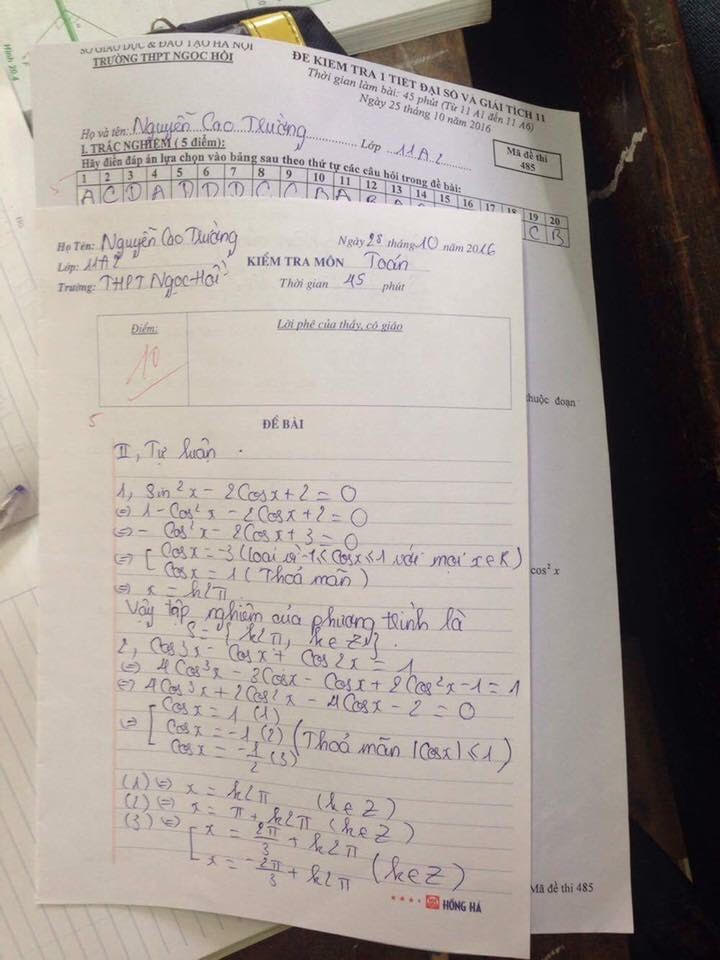 Hình 20.4
SỞ GIÁO DỤC & ĐÀO TẠO HÀ NỘI
TRƯỜNG THPT NGỌC HỒI
ĐỀ KIỂM TRA 1 TIẾT ĐẠI SỐ VÀ GIẢI TÍCH 11
Thời gian làm bài: 45 phút (Từ 11 A1 đến 11 A6)
Ngày 25 tháng 10 năm 2016
Họ và tên: Nguyễn Cao Trường Lớp 11A2
Mã đề thi
485
I. TRẮC NGHIỆM ( 5 điểm):
Hãy điền đáp án lựa chọn vào bảng sau theo thứ tự các câu hỏi trong đề bài:
1 2 3 4 5 6 7 8 9 10 11 12 13 14 15 16 17 18 19 20
A C D A D D D C C B A B C B
Họ Tên: Nguyễn Cao Trường
Ngày 28 tháng 10 năm 2016
Lớp: 11A2
KIỂM TRA MÔN Toán
Trường: THPT Ngọc Hồi
Thời gian 45 phút
Điểm:
Lời phê của thầy, cô giáo
10
5
ĐỀ BÀI
II, Tự luận
1, Sin²x - 2Cosx + 2 = 0
⇔ 1 - Cos²x - 2Cosx + 2 = 0
⇔ - Cos²x - 2Cosx + 3 = 0
⇔ [ Cosx = -3 (loại vì -1 ≤ Cosx ≤ 1 với mọi x ∈ R)
Cosx = 1 (Thoả mãn)
⇔ x = k2π
Vậy tập nghiệm của phương trình là
S = { k2π, k ∈ Z }.
2, Cos3x - Cosx + Cos2x = 1
⇔ 4Cos³x - 3Cosx - Cosx + 2Cos²x - 1 = 1
⇔ 4Cos³x + 2Cos²x - 4Cosx - 2 = 0
⇔ [ Cosx = 1 (1)
Cosx = -1 (2) (Thoả mãn |Cosx| ≤ 1)
Cosx = -1/2 (3)
(1) ⇔ x = k2π (k ∈ Z)
(2) ⇔ x = π + k2π (k ∈ Z)
(3) ⇔ [ x = 2π/3 + k2π
x = -2π/3 + k2π (k ∈ Z)
HỒNG HÀ
thuộc đoạn
cos² x
Mã đề thi 485